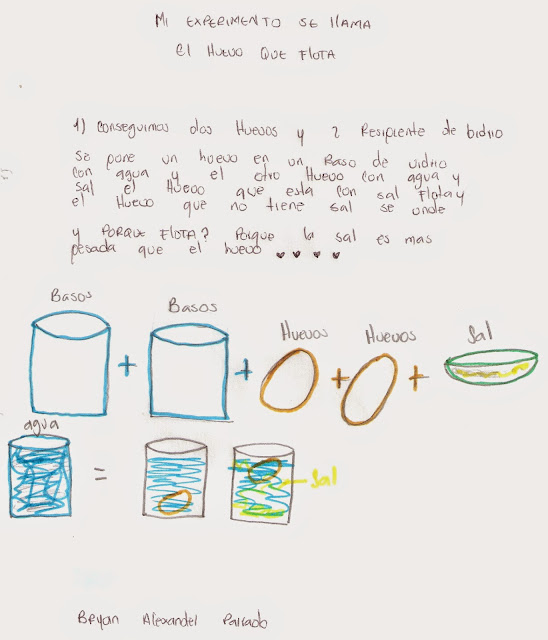 Mi EXPERIMENTO SE llAMA
El HUEVO QUE FlOTA
1) Conseguimos dos Huevos y 2 Resipiente de bidrio
se pone un huevo en un Baso de vidrio
con agua y el otro Huevo con agua y
sal el Huevo que esta con sal Flota y
el Huevo que no tiene sal se unde
y PORQUE FlOTA? Porque la sal es mas
pesada que el huevo ♥ ♥ ♥ ♥
Basos
Basos
Huevos
Huevos
Sal
+ + + +
agua
=
Sal
Bryan Alexander Parrado